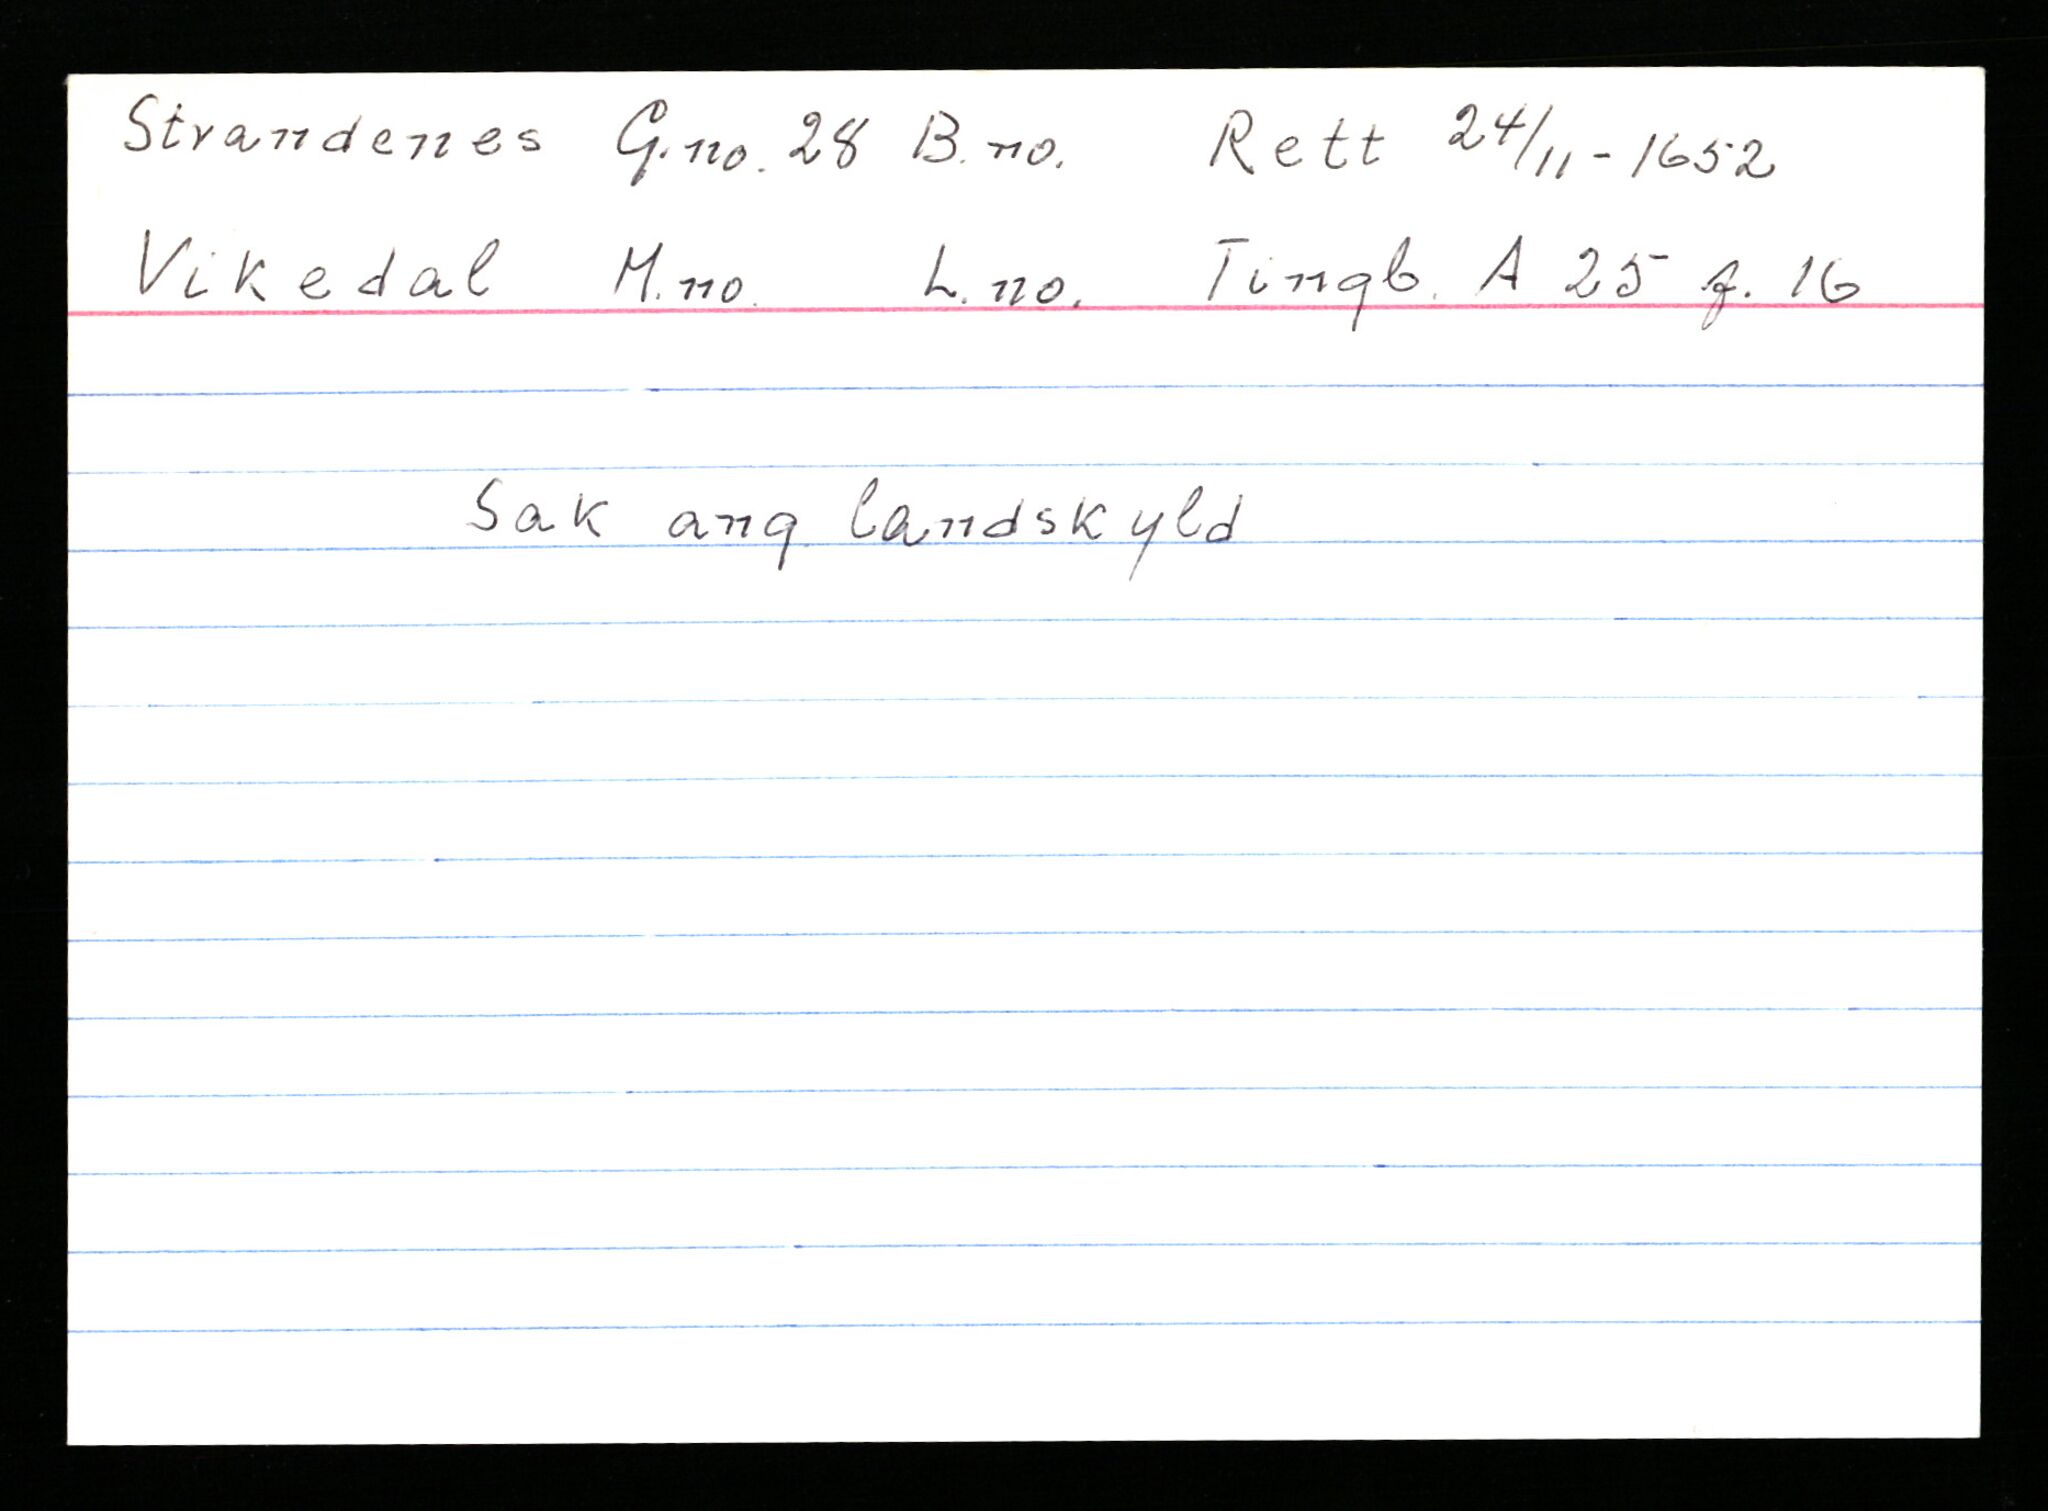 Strandenes G.no. 28 B.no. Rett 24/11-1652
Vikedal M.no. L.no. Tingb. A 25 f. 16
Sak ang landskyld